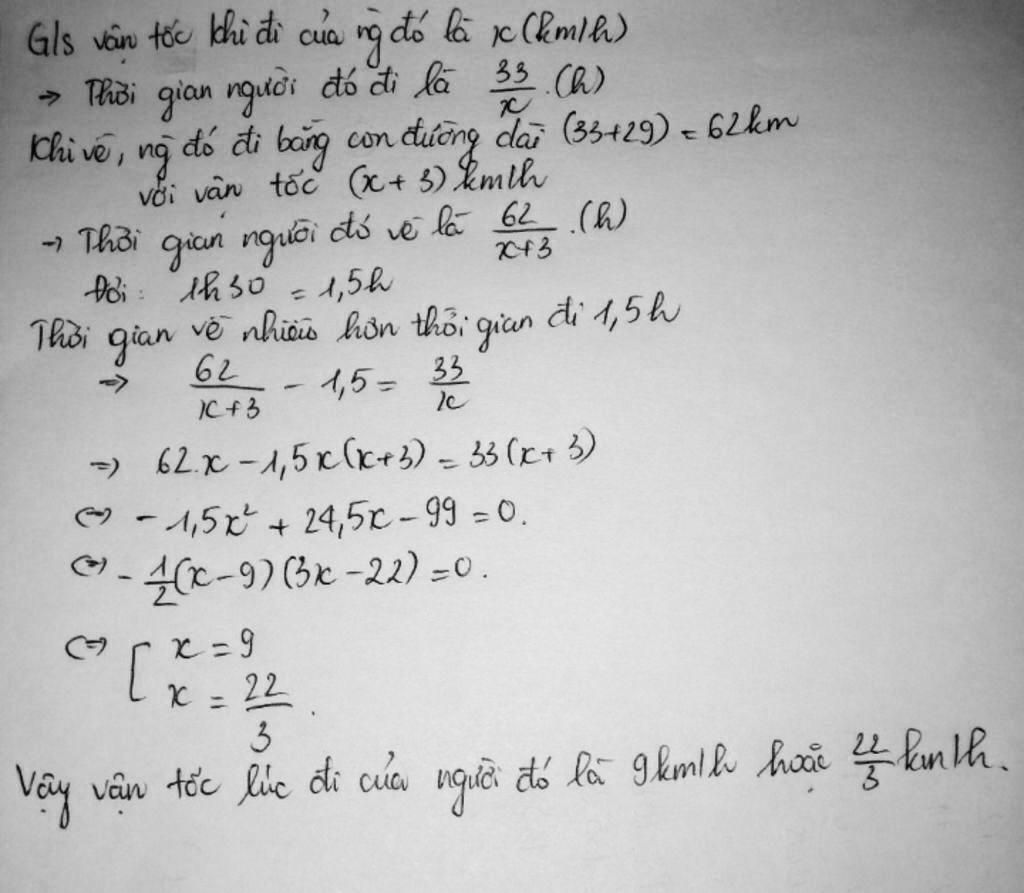 G/s vận tốc khi đi của ng đó là x (km/h)
→ Thời gian người đó đi là 33/x .(h)
Khi về, ng đó đi bằng con đường dài (33+29) = 62km
với vận tốc (x + 3) km/h
→ Thời gian người đó về là 62/(x+3) .(h)
Đổi: 1h30 = 1,5h
Thời gian về nhiều hơn thời gian đi 1,5h
=> 62/(x+3) - 1,5 = 33/x
=> 62.x - 1,5x(x+3) = 33(x+3)
<=> - 1,5x² + 24,5x - 99 = 0.
<=> - 1/2(x-9)(3x-22) = 0.
<=> [ x = 9
x = 22/3 .
Vậy vận tốc lúc đi của người đó là 9km/h hoặc 22/3 km/h.